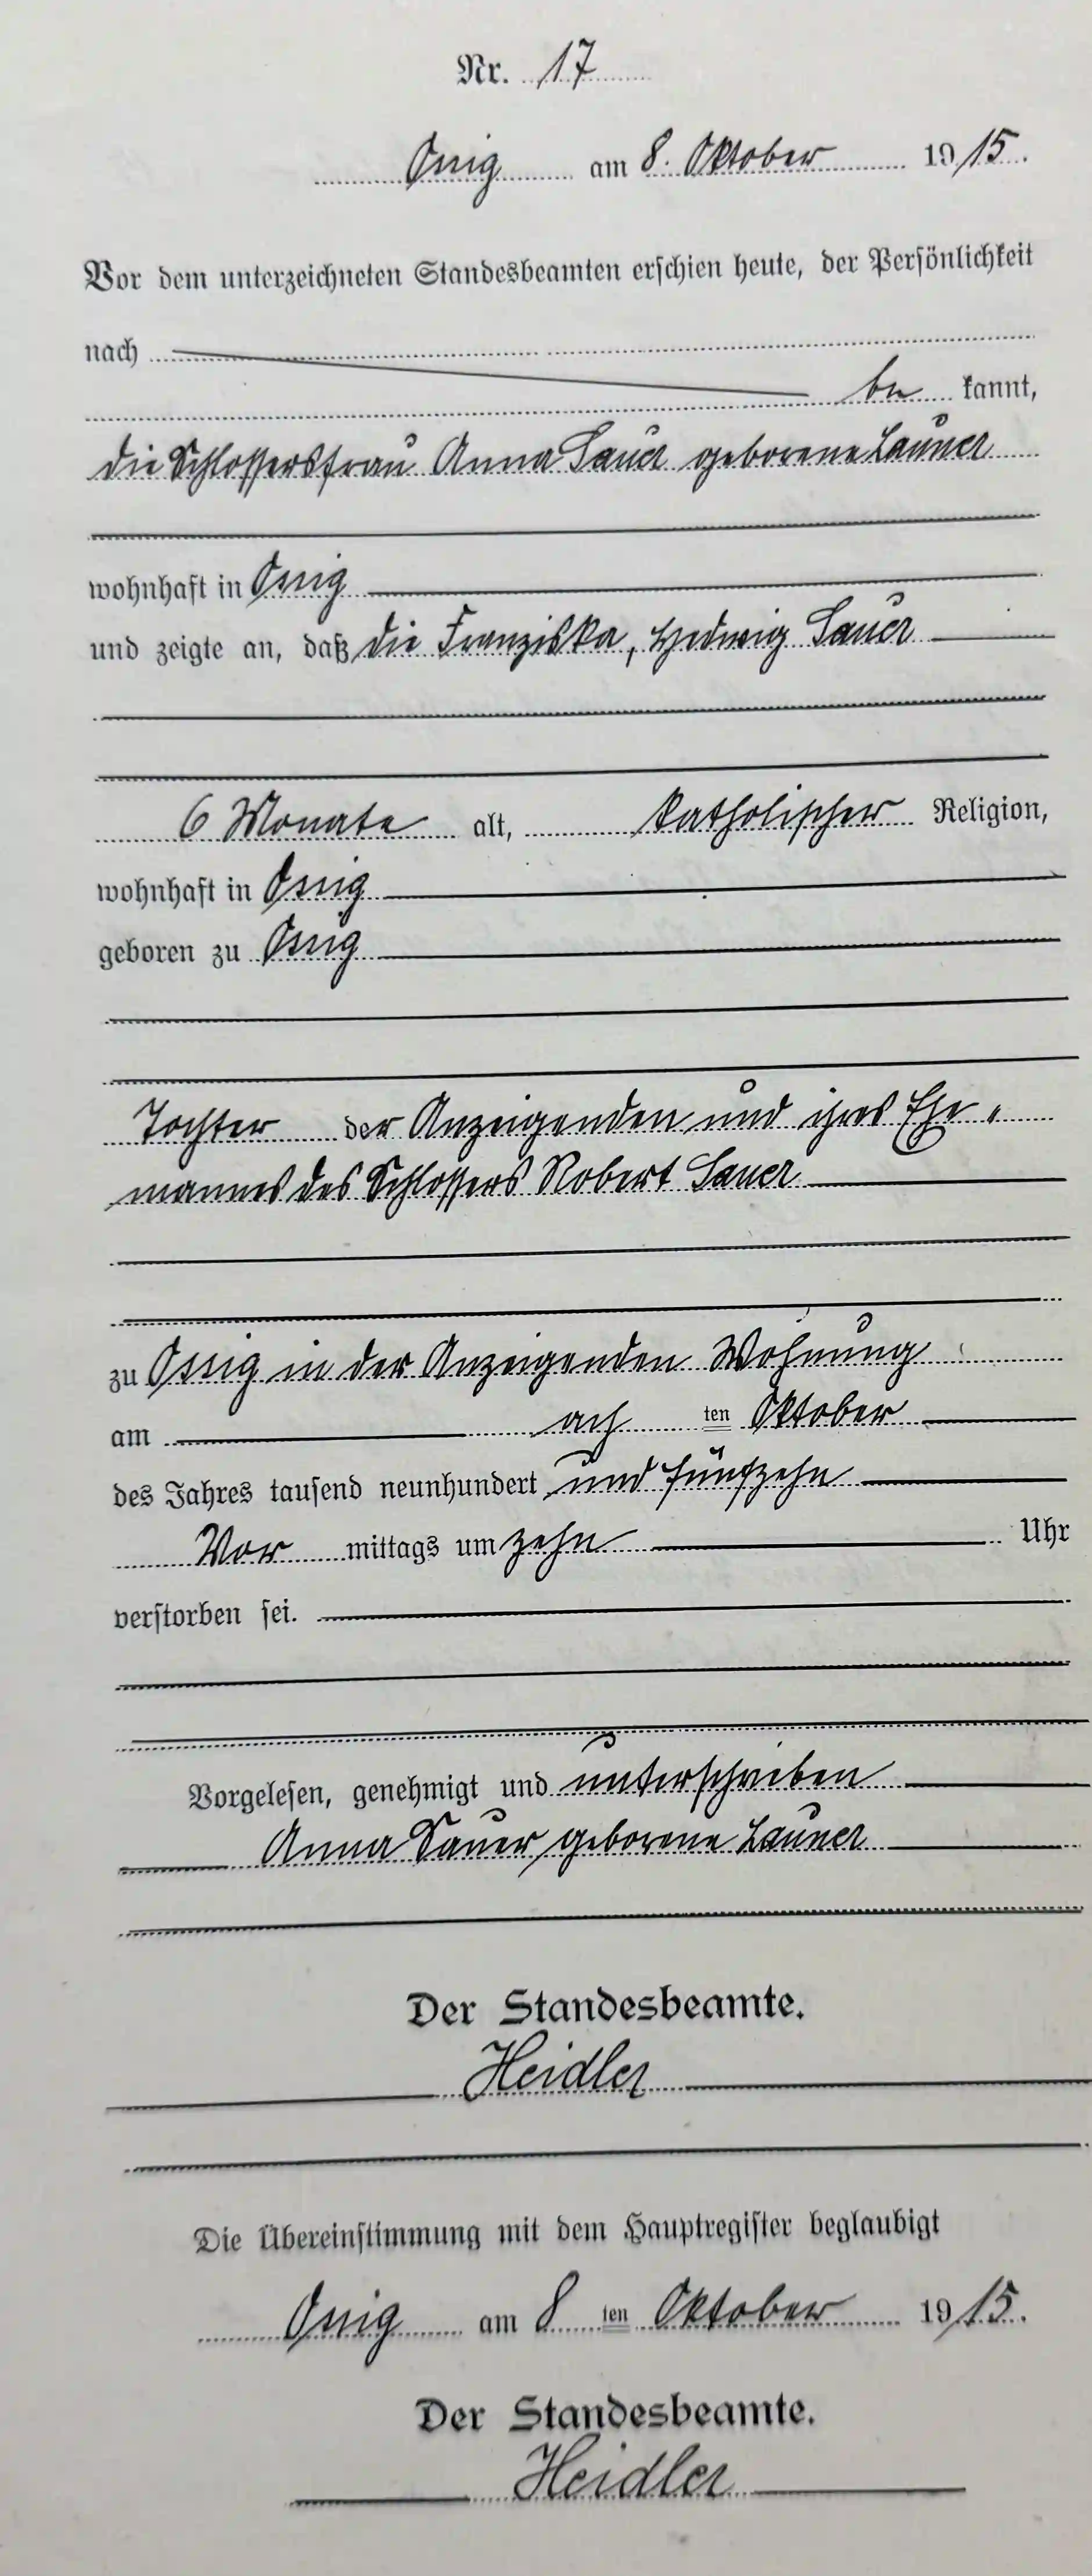 Nr. 17
Ossig am 8. Oktober 1915.
Vor dem unterzeichneten Standesbeamten erschien heute, der Persönlichkeit
nach
be kannt,
die Schlossersfrau Anna Sauer geborene Launer
wohnhaft in Ossig
und zeigte an, daß die Franziska, Hedwig Sauer
6 Monate alt, katholischer Religion,
wohnhaft in Ossig
geboren zu Ossig
Tochter der Anzeigenden und ihres Ehe-
mannes des Schlossers Robert Sauer
zu Ossig in der Anzeigenden Wohnung
am ach ten Oktober
des Jahres tausend neunhundert und fünfzehn
Vor mittags um zehn Uhr
verstorben sei.
Vorgelesen, genehmigt und unterschrieben
Anna Sauer geborene Launer
Der Standesbeamte.
Heidler
Die Übereinstimmung mit dem Hauptregister beglaubigt
Ossig am 8 ten Oktober 1915.
Der Standesbeamte.
Heidler